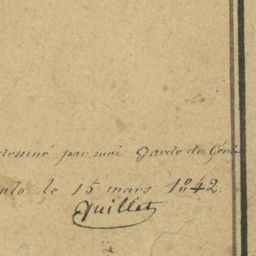 par moi Garde du Génie
le 15 mars 1842
Guillet